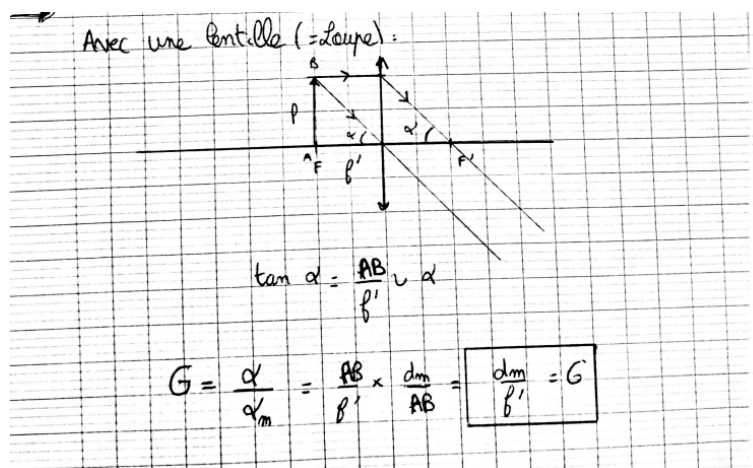 Avec une lentille (=Loupe) :
B
P
α
α
A
F
f'
F'
tan α = AB/f' ~ α
G = α/αm = AB/f' × dm/AB = dm/f' = G